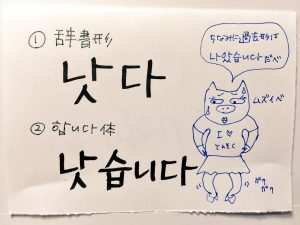 ① 辞書形
낫다
② 합니다体
낫습니다
ちなみに過去形は
나았습니다だべ
ムズイべ
I ♡
とんそく
ガク
ガク